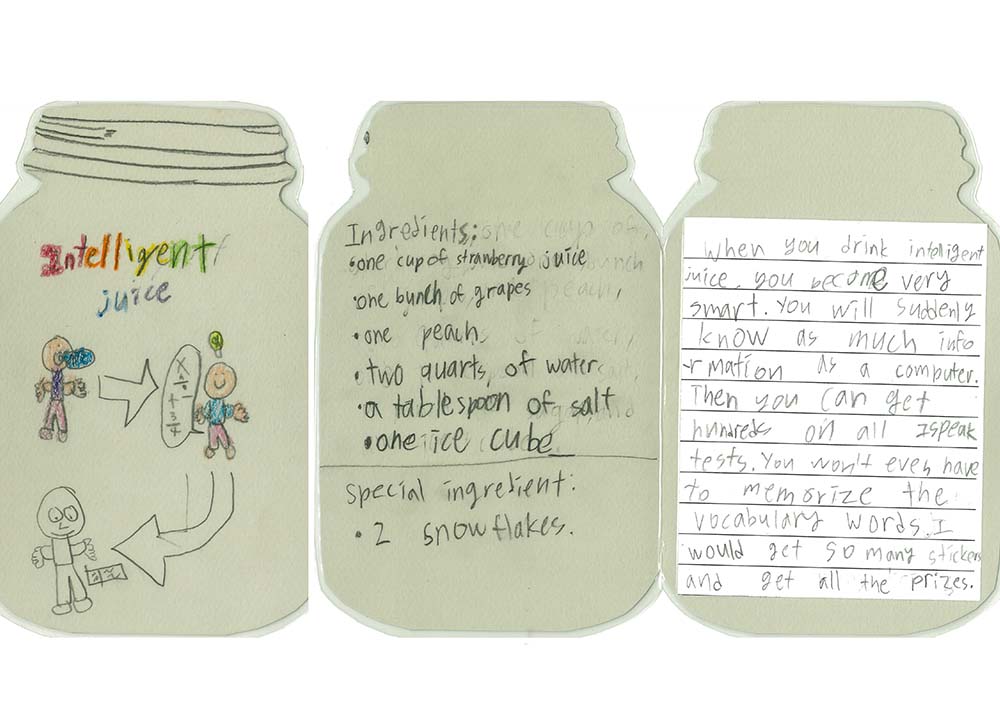 Intelligent
juice
X
÷
+
3/4
Ingredients:
•one cup of strawberry juice
•one bunch of grapes
•one peach
•two quarts, of water
•a tablespoon of salt
•one ice cube
special ingredient:
•2 snowflakes.
When you drink intelligent
juice. you become very
smart. You will suddenly
know as much info
rmation as a computer.
Then you can get
hundreds on all Ispeak
tests. You won't even have
to memorize the
vocabulary words. I
would get so many stickers
and get all the prizes.